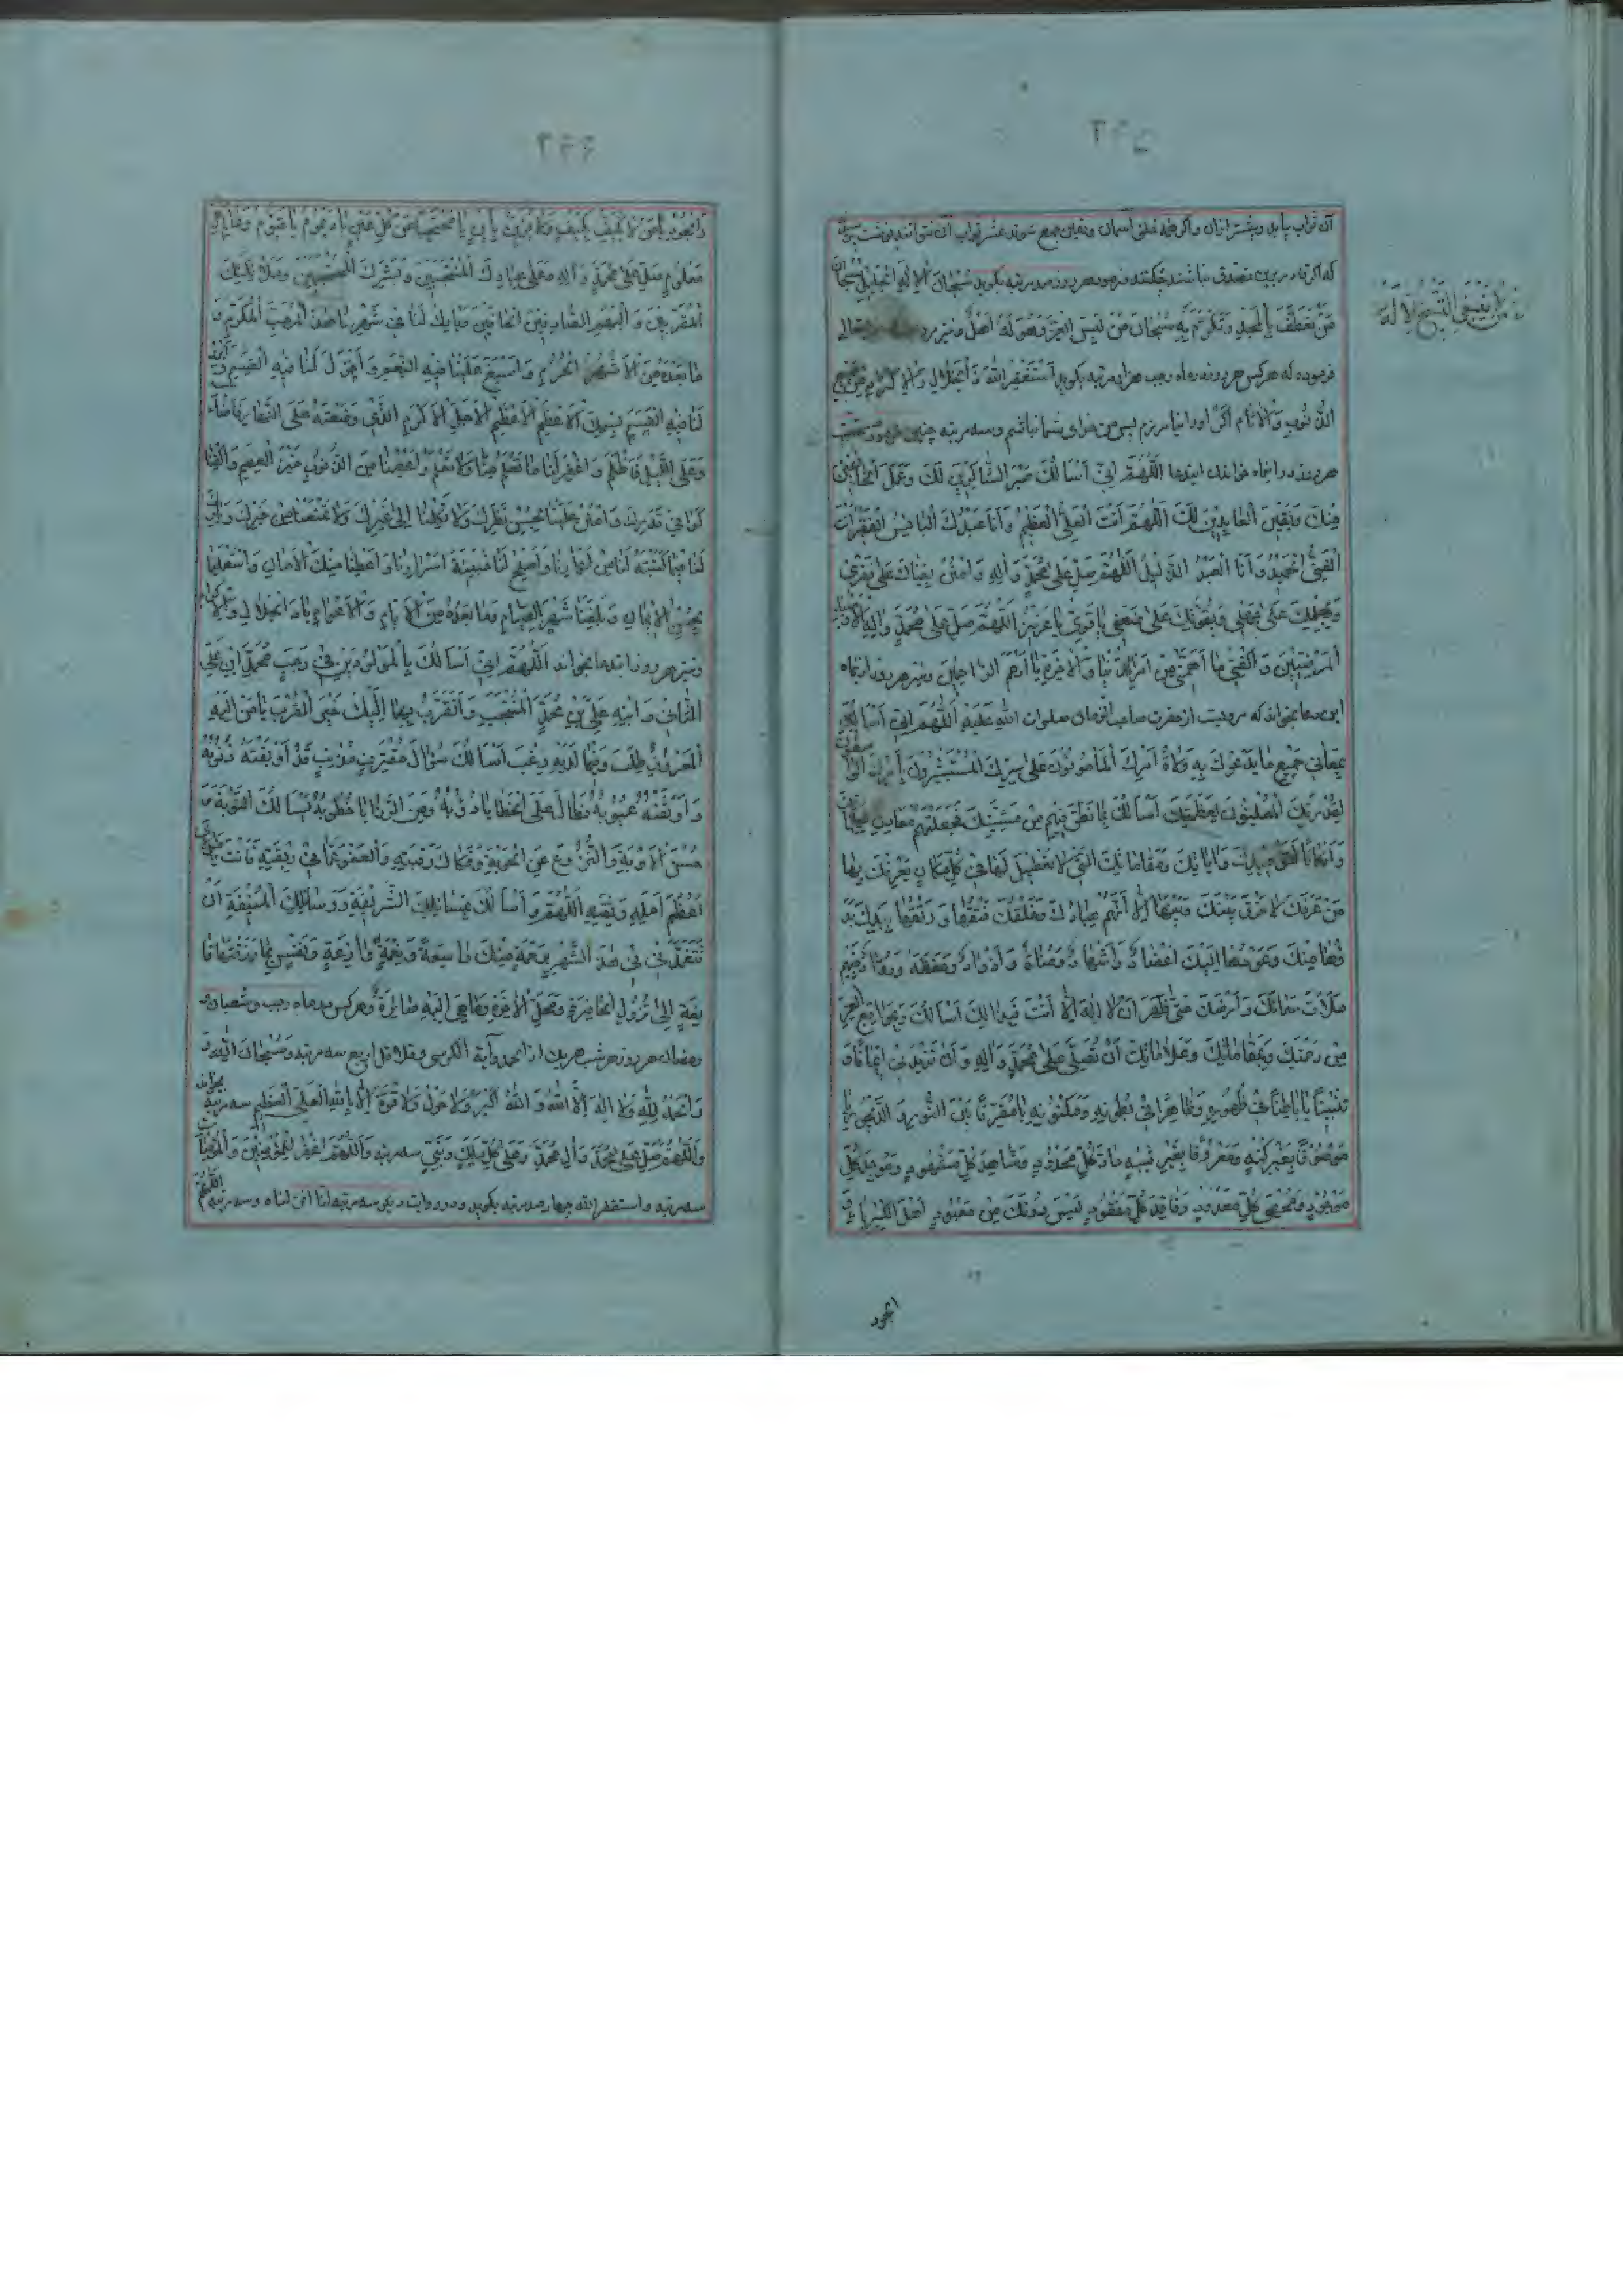 آن ثواب بیابد و بیشتر از آن و اگر همه خلق آسمان و زمین جمع شوند عشر ثواب آن نتوانند نوشت
که اگر قادر برین تصدق نباشند چکنند فرمود هر روز صد مرتبه بگوید سُبْحَانَ الْاِلٰهِ الْجَلِیلِ سُبْحَانَ
مَنْ تَعَطَّفَ بِالْمَجْدِ وَتَكَرَّمَ بِهِ سُبْحَانَ مَنْ لَبِسَ الْعِزَّ وَهُوَ لَهُ اَهْلٌ و نیز
مَنْ لَا یَنْبَغِی التَّسْبِیحُ اِلَّا لَهُ
فرموده که هر کس هر روز در ماه رجب هزار مرتبه بگوید اَسْتَغْفِرُ اللّٰهَ ذَا الْجَلَالِ وَالْاِكْرَامِ مِنْ جَمِیعِ
الذُّنُوبِ وَالْاٰثَامِ اگر او را نیامرزم پس من خدای شما نباشم و سه مرتبه چنین فرمود
هر روز در اینماه خواندن ایندعا اَللّٰهُمَّ اِنِّی اَسْاَلُكَ صَبْرَ الشَّاكِرِینَ لَكَ وَعَمَلَ الْخَائِفِینَ
مِنْكَ وَیَقِینَ الْعَابِدِینَ لَكَ اَللّٰهُمَّ اَنْتَ الْعَلِیُّ الْعَظِیمُ وَاَنَا عَبْدُكَ الْبَائِسُ الْفَقِیرُ اَنْتَ
الْغَنِیُّ الْحَمِیدُ وَاَنَا الْعَبْدُ الذَّلِیلُ اَللّٰهُمَّ صَلِّ عَلٰی مُحَمَّدٍ وَاٰلِهِ وَامْنُنْ بِغِنَاكَ عَلٰی فَقْرِی
وَبِحِلْمِكَ عَلٰی جَهْلِی وَبِقُوَّتِكَ عَلٰی ضَعْفِی یَا قَوِیُّ یَا عَزِیزُ اَللّٰهُمَّ صَلِّ عَلٰی مُحَمَّدٍ وَاٰلِهِ الْاَوْصِیَاءِ
الْمَرْضِیِّینَ وَاكْفِنِی مَا اَهَمَّنِی مِنْ اَمْرِ الدُّنْیَا وَالْاٰخِرَةِ یَا اَرْحَمَ الرَّاحِمِینَ و نیز هر روز اینماه
این دعا بخواند که مرویست از حضرت صاحب الزمان صلوات الله علیه اَللّٰهُمَّ اِنِّی اَسْاَلُكَ
بِمَعَانِی جَمِیعِ مَا یَدْعُوكَ بِهِ وُلَاةُ اَمْرِكَ الْمَاْمُونُونَ عَلٰی سِرِّكَ الْمُسْتَبْشِرُونَ بِاَمْرِكَ الْوَاصِفُونَ
لِقُدْرَتِكَ الْمُعْلِنُونَ لِعَظَمَتِكَ اَسْاَلُكَ بِمَا نَطَقَ فِیهِمْ مِنْ مَشِیَّتِكَ فَجَعَلْتَهُمْ مَعَادِنَ لِكَلِمَاتِكَ
وَاَرْكَانًا لِتَوْحِیدِكَ وَاٰیَاتِكَ وَمَقَامَاتِكَ الَّتِی لَا تَعْطِیلَ لَهَا فِی كُلِّ مَكَانٍ یَعْرِفُكَ بِهَا
مَنْ عَرَفَكَ لَا فَرْقَ بَیْنَكَ وَبَیْنَهَا اِلَّا اَنَّهُمْ عِبَادُكَ وَخَلْقُكَ فَتْقُهَا وَرَتْقُهَا بِیَدِكَ بَدْ
ؤُهَا مِنْكَ وَعَوْدُهَا اِلَیْكَ اَعْضَادٌ وَاَشْهَادٌ وَمُنَاةٌ وَاَذْوَادٌ وَحَفَظَةٌ وَرُوَّادٌ فَبِهِمْ
مَلَأْتَ سَمَائَكَ وَاَرْضَكَ حَتّٰی ظَهَرَ اَنْ لَا اِلٰهَ اِلَّا اَنْتَ فَبِذٰلِكَ اَسْاَلُكَ وَبِمَوَاقِعِ الْعِزِّ
مِنْ رَحْمَتِكَ وَبِمَقَامَاتِكَ وَعَلَامَاتِكَ اَنْ تُصَلِّیَ عَلٰی مُحَمَّدٍ وَاٰلِهِ وَاَنْ تَزِیدَنِی اِیمَانًا وَ
تَثْبِیتًا یَا بَاطِنًا فِی ظُهُورِهِ وَظَاهِرًا فِی بُطُونِهِ وَمَكْنُونِهِ یَا مُفَرِّقًا بَیْنَ النُّورِ وَالدَّیْجُورِ یَا
مَوْصُوفًا بِغَیْرِ كُنْهٍ وَمَعْرُوفًا بِغَیْرِ شِبْهٍ حَادَّ كُلِّ مَحْدُودٍ وَشَاهِدَ كُلِّ مَشْهُودٍ وَمُوجِدَ كُلِّ
مَوْجُودٍ وَمُحْصِیَ كُلِّ مَعْدُودٍ وَفَاقِدَ كُلِّ مَفْقُودٍ لَیْسَ دُونَكَ مِنْ مَعْبُودٍ اَهْلَ الْكِبْرِیَاءِ وَ
الجود
وَالْجُودِ یَا مَنْ لَا یُكَیَّفُ بِكَیْفٍ وَلَا یُؤَیَّنُ بِاَیْنٍ یَا مُحْتَجِبًا عَنْ كُلِّ عَیْنٍ یَا دَیْمُومُ یَا قَیُّومُ وَعَالِمَ كُلِّ
مَعْلُومٍ صَلِّ عَلٰی مُحَمَّدٍ وَاٰلِهِ وَعَلٰی عِبَادِكَ الْمُنْتَجَبِینَ وَبَشَرِكَ الْمُحْتَجِبِینَ وَمَلَائِكَتِكَ
الْمُقَرَّبِینَ وَالْبُهْمِ الصَّافِّینَ الْحَافِّینَ وَبَارِكْ لَنَا فِی شَهْرِنَا هٰذَا الْمُرَجَّبِ الْمُكَرَّمِ وَ
مَا بَعْدَهُ مِنَ الْاَشْهُرِ الْحُرُمِ وَاَسْبِغْ عَلَیْنَا فِیهِ النِّعَمَ وَاَجْزِلْ لَنَا فِیهِ الْقِسَمَ وَاَبْرِرْ
لَنَا فِیهِ الْقَسَمَ بِاسْمِكَ الْاَعْظَمِ الْاَعْظَمِ الْاَجَلِّ الْاَكْرَمِ الَّذِی وَضَعْتَهُ عَلَی النَّهَارِ فَاَضَاءَ
وَعَلَی اللَّیْلِ فَاَظْلَمَ وَاغْفِرْ لَنَا مَا تَعْلَمُ مِنَّا وَلَا نَعْلَمُ وَاعْصِمْنَا مِنَ الذُّنُوبِ خَیْرَ الْعِصَمِ وَاكْفِنَا
كَوَافِیَ قَدَرِكَ وَامْنُنْ عَلَیْنَا بِحُسْنِ نَظَرِكَ وَلَا تَكِلْنَا اِلٰی غَیْرِكَ وَلَا تَمْنَعْنَا مِنْ خَیْرِكَ وَبَارِكْ
لَنَا فِیمَا كَتَبْتَهُ لَنَا مِنْ اَعْمَارِنَا وَاَصْلِحْ لَنَا خَبِیئَةَ اَسْرَارِنَا وَاَعْطِنَا مِنْكَ الْاَمَانَ وَاسْتَعْمِلْنَا
بِحُسْنِ الْاِیمَانِ وَبَلِّغْنَا شَهْرَ الصِّیَامِ وَمَا بَعْدَهُ مِنَ الْاَیَّامِ وَالْاَعْوَامِ یَا ذَا الْجَلَالِ وَالْاِكْرَامِ
و نیز هر روز ایندعا بخواند اَللّٰهُمَّ اِنِّی اَسْاَلُكَ بِالْمَوْلُودَیْنِ فِی رَجَبٍ مُحَمَّدِ ابْنِ عَلِیٍّ
الثَّانِی وَابْنِهِ عَلِیِّ بْنِ مُحَمَّدٍ الْمُنْتَجَبِ وَاَتَقَرَّبُ بِهِمَا اِلَیْكَ خَیْرَ الْقُرَبِ یَا مَنْ اِلَیْهِ
الْمَعْرُوفُ طُلِبَ وَفِیمَا لَدَیْهِ رُغِبَ اَسْاَلُكَ سُؤَالَ مُقْتَرِفٍ مُذْنِبٍ قَدْ اَوْبَقَتْهُ ذُنُوبُهُ
وَاَوْثَقَتْهُ عُیُوبُهُ فَطَالَ عَلَی الْخَطَایَا دُؤُبُهُ وَمِنَ الرَّزَایَا خُطُوبُهُ یَسْاَلُكَ التَّوْبَةَ وَ
حُسْنَ الْاَوْبَةِ وَالنُّزُوعَ عَنِ الْحَوْبَةِ وَفَكَاكَ رَقَبَتِهِ وَالْعَفْوَ عَمَّا فِی رِبْقَتِهِ فَاَنْتَ یَا مَوْلَایَ
اَعْظَمُ اَمَلِهِ وَثِقَتِهِ اَللّٰهُمَّ وَاَسْاَلُكَ بِمَسَائِلِكَ الشَّرِیفَةِ وَوَسَائِلِكَ الْمُنِیفَةِ اَنْ
تَتَغَمَّدَنِی فِی هٰذَا الشَّهْرِ بِرَحْمَةٍ مِنْكَ وَاسِعَةٍ وَنِعْمَةٍ وَازِعَةٍ وَنَفْسٍ بِمَا رَزَقْتَهَا قَا
نِعَةٍ اِلٰی نُزُولِ الْحَافِرَةِ وَمَحَلِّ الْاٰخِرَةِ وَمَا هِیَ اِلَیْهِ صَائِرَةٌ و هر کس در ماه رجب و شعبان و
رمضان هر روز و هر شب هر یک از الحمد و آیة الکرسی و قلاقل اربع سه مرتبه وَسُبْحَانَ اللّٰهِ
وَالْحَمْدُ لِلّٰهِ وَلَا اِلٰهَ اِلَّا اللّٰهُ وَاللّٰهُ اَكْبَرُ وَلَا حَوْلَ وَلَا قُوَّةَ اِلَّا بِاللّٰهِ الْعَلِیِّ الْعَظِیمِ سه مرتبه بخواند
وَاللّٰهُمَّ صَلِّ عَلٰی مُحَمَّدٍ وَاٰلِ مُحَمَّدٍ وَعَلٰی كُلِّ مَلَكٍ وَنَبِیٍّ سه مرتبه وَاللّٰهُمَّ اغْفِرْ لِلْمُؤْمِنِینَ وَالْمُؤْمِنَاتِ
سه مرتبه و استغفر الله چهار صد مرتبه بگوید و در روایت دیگر سه مرتبه و سه مرتبه اللّٰهُمَّ